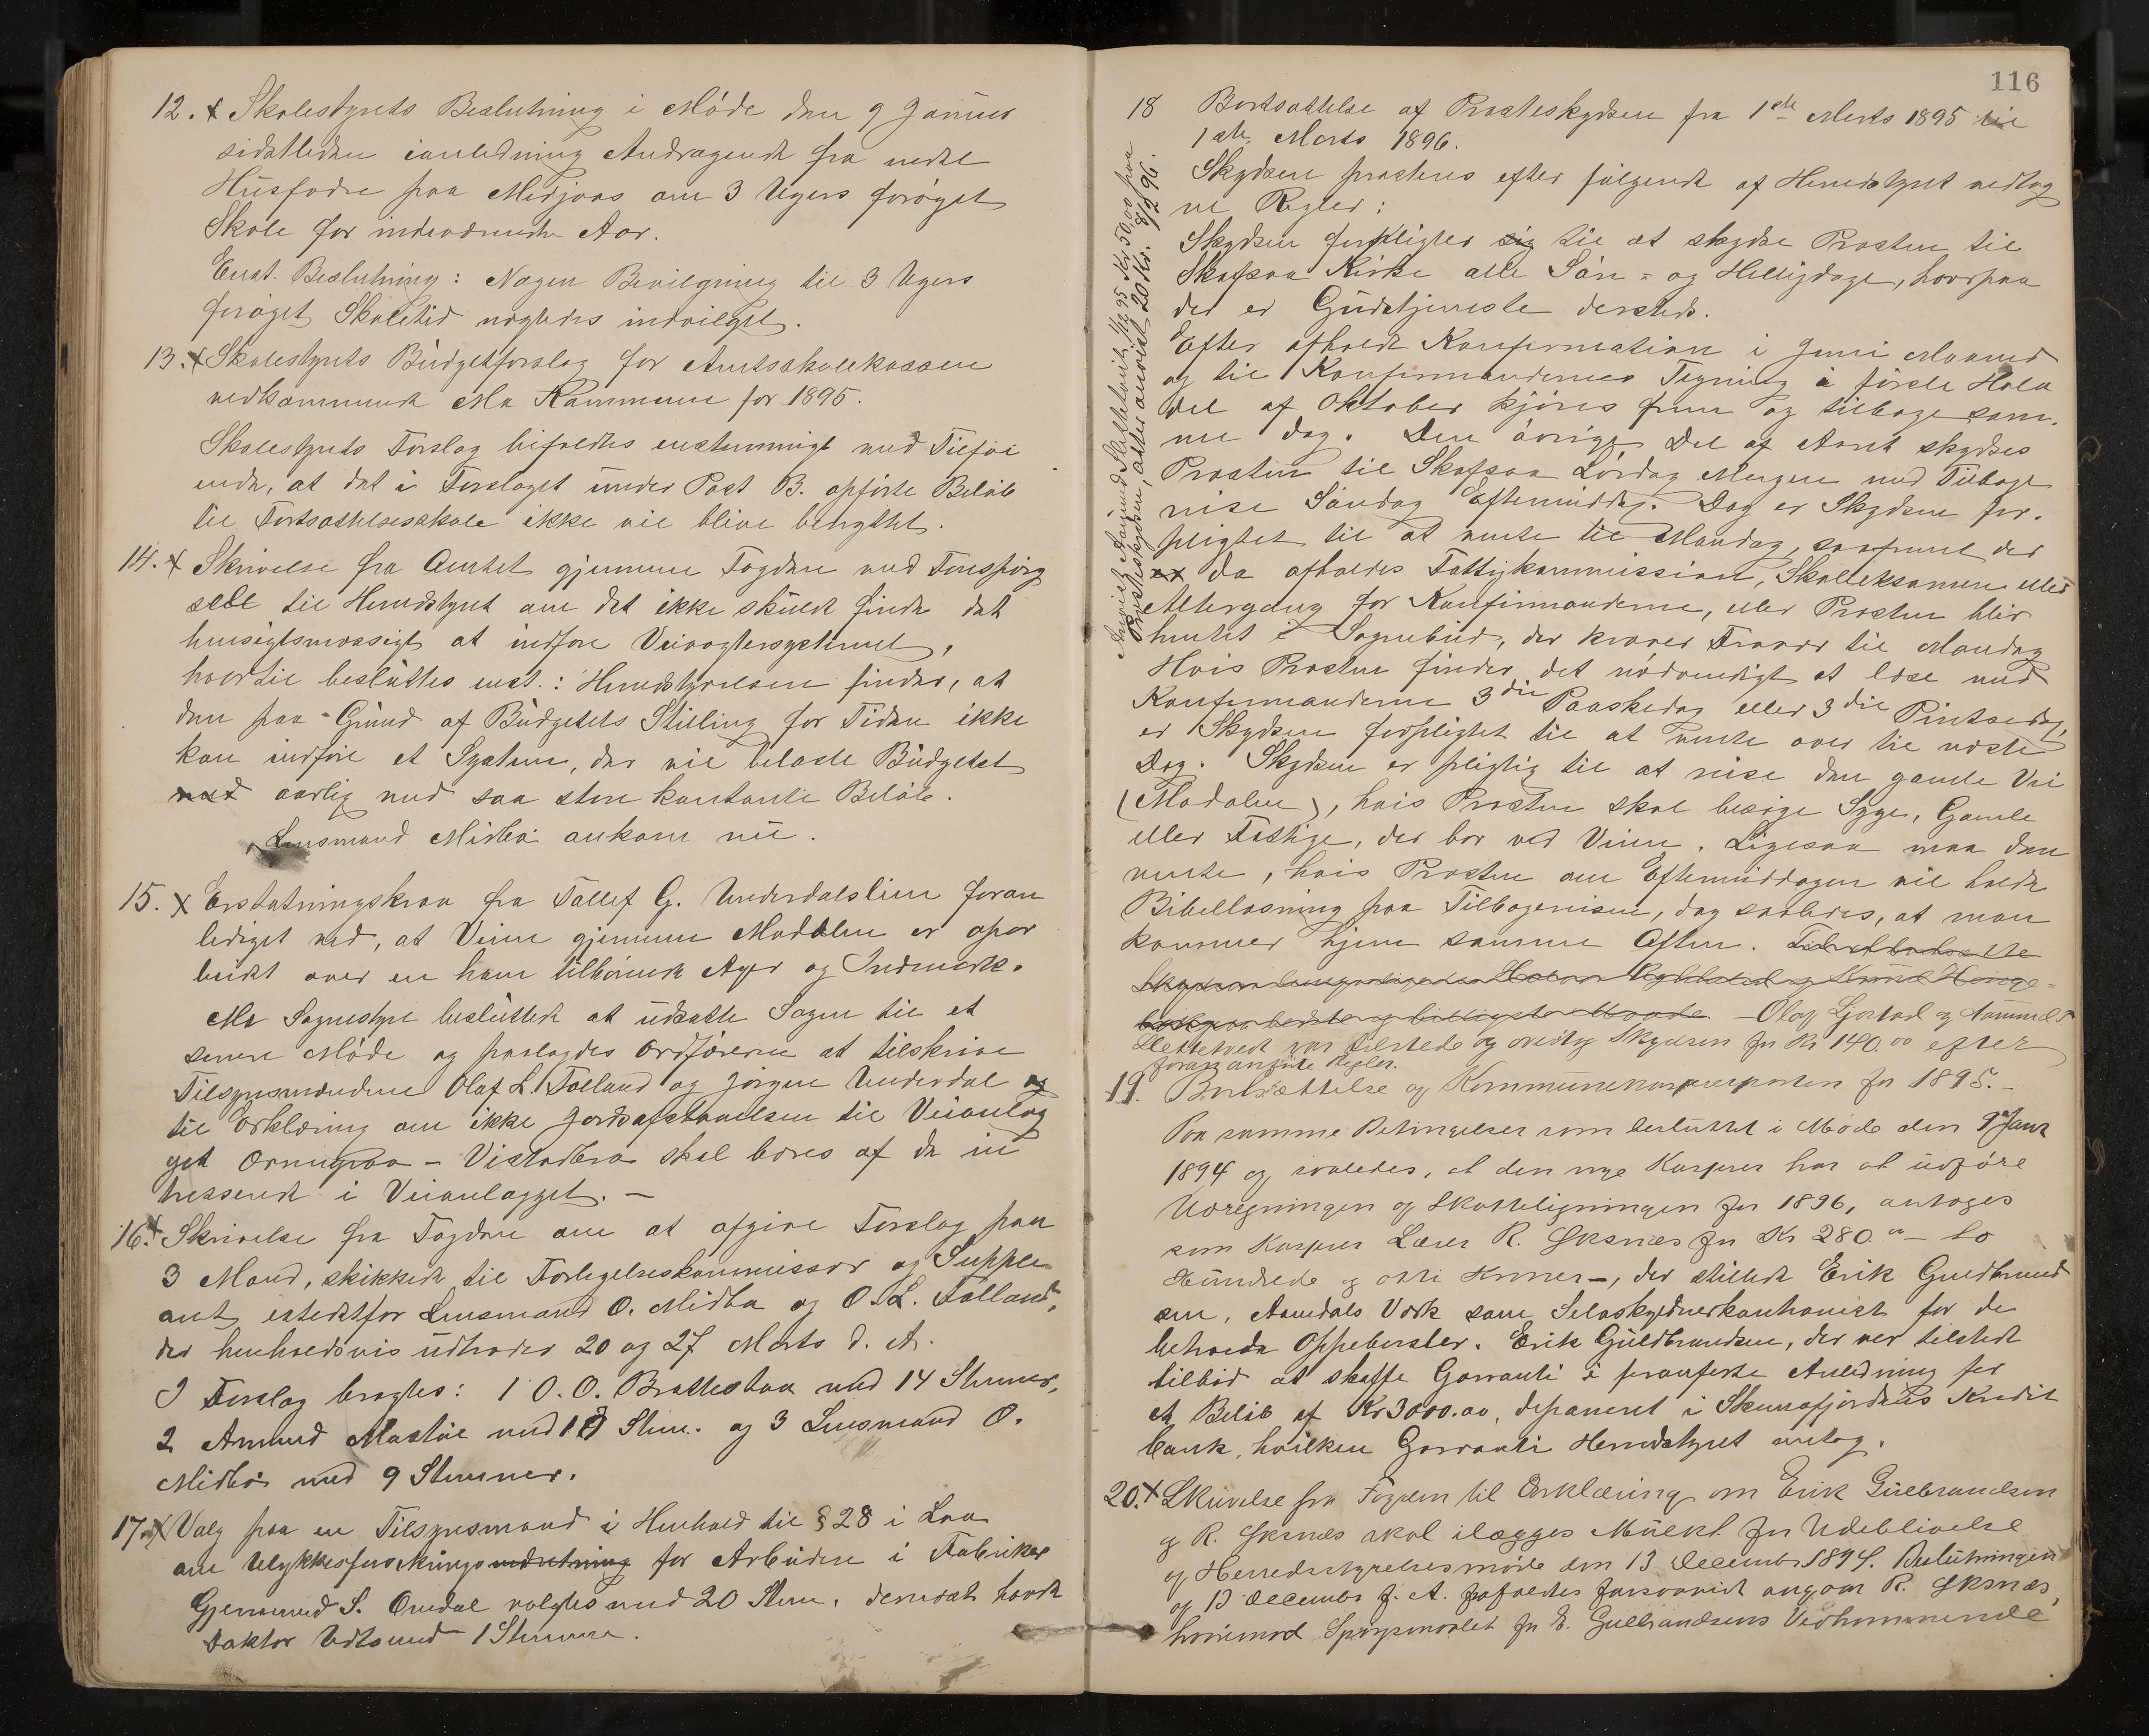 12. x Skolestyrets Beslutning i Møde den 9 Januar
sidstleden ianledning Andragende fra nedre
Husfædre paa Midjaas om 3 Ugers forøget
Skole for indeværende Aar.
Enst. Beslutning: Nogen Bevilgning til 3 Ugers
forøget Skoletid nægtedes indvilget.
13. x Skolestyrets Budgetforslag for Amtsskolekassen
vedkommende Mo Kommune for 1895.
Skolestyrets Forslag bifaldtes enstemmigt med Tilføi
ende, at det i Forslaget under Post B. opførte Beløb
til Fortsættelsesskole ikke vil blive benyttet.
14. x Skrivelse fra Amtet gjennem Fogden med Forespørg
sel til Herredstyret om det ikke skulde finde det
hensigtsmæssigt at indføre Veivogtersystemet,
hvortil besluttes enst.: Herredstyrelsen finder, at
den paa Grund af Budgetets Stilling for Tiden ikke
kan indføre et System, der vil belaste Budgetet
med aarlig med saa store kontante Beløb.
Lensmand Midbø ankom nu.
15. x Erstatningskrav fra Tallef G. Underdalslien foran
lediget ved, at Veien gjennem Modalen er opar
beidet over en ham tilhørende Ager og Indmark.
Mo Sognestyre besluttede at udsætte Sagen til et
senere Møde og paalagdes Ordføreren at tilskrive
Tilsynsmændene Olaf L. Folland og Jørgen Underdal og
til Erklæring om ikke Jordafstaaelsen til Veianlæg
get Ormegraa - Vistadbro skal bæres af de in
tresserede i Veianlægget. -
16. x Skrivelse fra Fogden om at afgive Forslag paa
3 Mænd, skikkede til Forligelseskommissær og Supple
ant istedetfor Lensmand O. Midbø og O. L. Folland,
der henholdsvis udtræder 20 og 27 Marts d. A.
I Forslag bragtes: 1 O. O. Brattestaa med 14 Stemmer,
2 Amund Mostøe med 10 Stem. og 3 Lensmand O.
Midbø med 9 Stemmer.
17. x Valg paa en Tilsynsmand i Henhold til § 28 i Lov
om Ulykkesforsikringsindretning for Arbeidere i Fabriker
Gjermund S. Omdal valgtes med 20 Stem. dernæst havde
Faktor Udtsmed 1 Stemme.
116
18 Bortsættelse af Prosteskydsen fra 1ste Marts 1895 til
1ste Marts 1896.
Skydsen præsteres efter følgende af Herredstyret vedtag
ne Regler:
Skydsen forpligter sig til at skydse Prosten til
Skafsaa Kirke alle Søn- og Helligdage, hvorpaa
der er Gudstjeneste dersteds.
Efter afholdt Konfirmation i Juni Maaned
og til Konfirmandernes Tegning i første Halv
del af Oktober kjøres frem og tilbage sam-
me dag. Den øvrige Del af Aaret skydses
Prosten til Skafsaa Lørdag Morgen med Tilbage
reise Søndag Eftermiddag. Dog er Skydsen for-
pligtet til at vente til Mandag, saafremt der
er da afholdes Fattigkommission, Skoleeksamen eller
Altergang for Konfirmanderne, eller Prosten blir
hentet i Sognebud, der kræver Fravær til Mandag
Hvis Prosten finder det nødvendigt at læse med
Konfirmanderne 3die Paaskedag eller 3die Pintsedag,
er Skydsen forpligtet til at vente over til næste
Dag. Skydsen er pligtig til at reise den gamle Vei
(Modalen), hvis Prosten skal besøge Syge, Gamle
eller Fattige, der bor ved Veien. Ligesaa maa den
vente, hvis Prosten om Eftermiddagen vil holde
Bibellæsning paa Tilbagereisen, dog saaledes, at man
kommer hjem samme Aften.
bedste og billigste Maade. - Olaf Gjostad og Aamund
Slettetveit var tilstede og overtog Skydsen for Kr 140.00 efter
foran anførte Regler.
Anvist Aamund Slettetveit 11/9 95 Kr. 50,00 paa
Prosteskydsen, atter anvist 20 Kr. 8/2 96.
19. Bortsættelse af Kommunekassererposten for 1895. -
Paa samme Betingelser som besluttet i Møde den 9 Janr
1894 og saaledes, at den nye Kasserer har at udføre
Udregningen og Skatteligningen for 1896, antoges
som Kasserer Lærer R. Øksnæs for Kr 280.00 - to
Hundrede og otti Kroner -, der stillede Erik Guldbrand
sen, Aamdals Værk som Selvskyldnerkautionist for de
betroede Oppebørsler. Erik Guldbrandsen, der var tilstede
tilbød at skaffe Garranti i foranførte Anledning for
et Beløb af Kr 3000.00, deponeret i Skiensfjordens Kredit
bank, hvilken Garranti Herredstyret antog.
20. x Skrivelse fra Fogden til Erklæring om Erik Gulbrandsen
og R. Øksnæs skal ilægges Mulkt for Udeblivelse
af Herredsstyrelsesmøde den 13 December 1894. Beslutningen
af 13 December f. A. frafaldtes forsaavidt angaar R. Øksnæs,
hvorimod Spørgsmaalet for E. Gulbrandsens Vedkommende